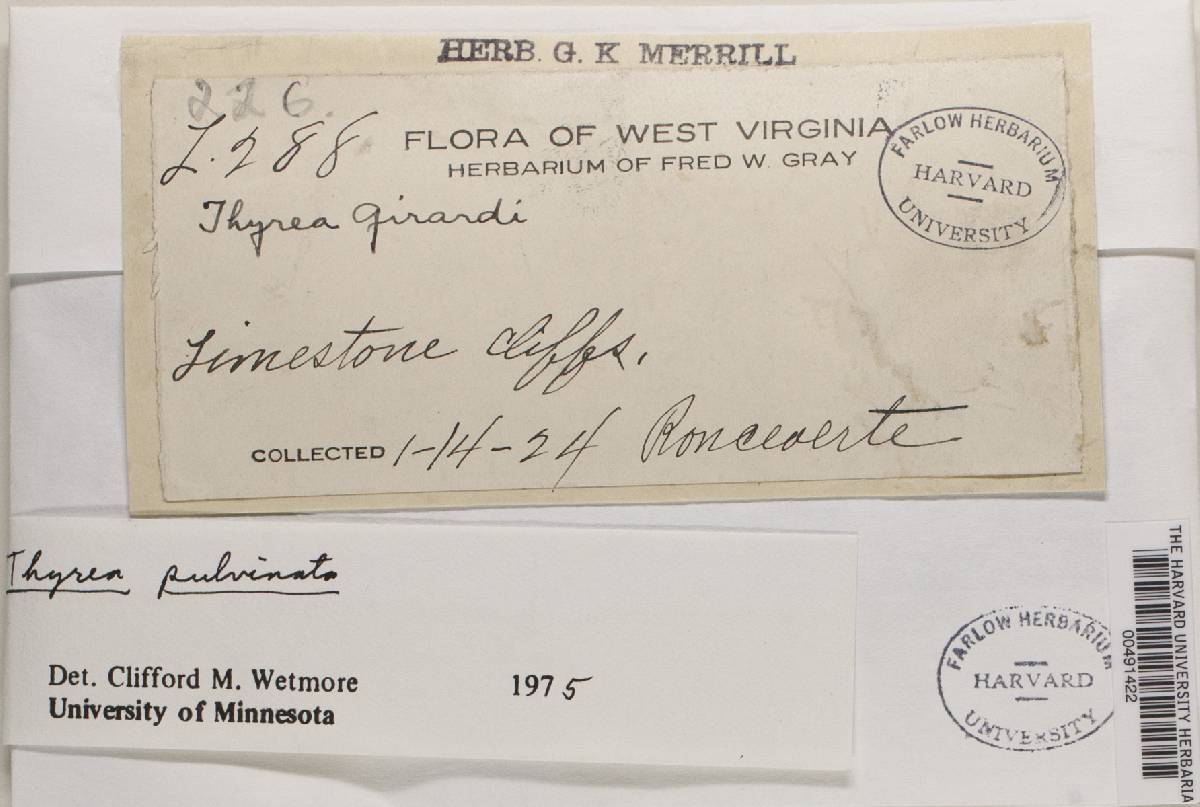 HERB. G. K MERRILL
226.
L. 288
FLORA OF WEST VIRGINIA
HERBARIUM OF FRED W. GRAY
FARLOW HERBARIUM
HARVARD
UNIVERSITY
Thyrea Girardi
Limestone cliffs.
COLLECTED 1-14-24 Ronceverte
Thyrea pulvinata
Det. Clifford M. Wetmore 1975
University of Minnesota
FARLOW HERBARIUM
HARVARD
UNIVERSITY
THE HARVARD UNIVERSITY HERBARIA
00491422